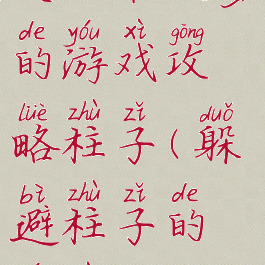 de yóu xì gōng
的游戏攻
lüè zhù zǐ duǒ
略柱子(躲
bì zhù zǐ de
避柱子的